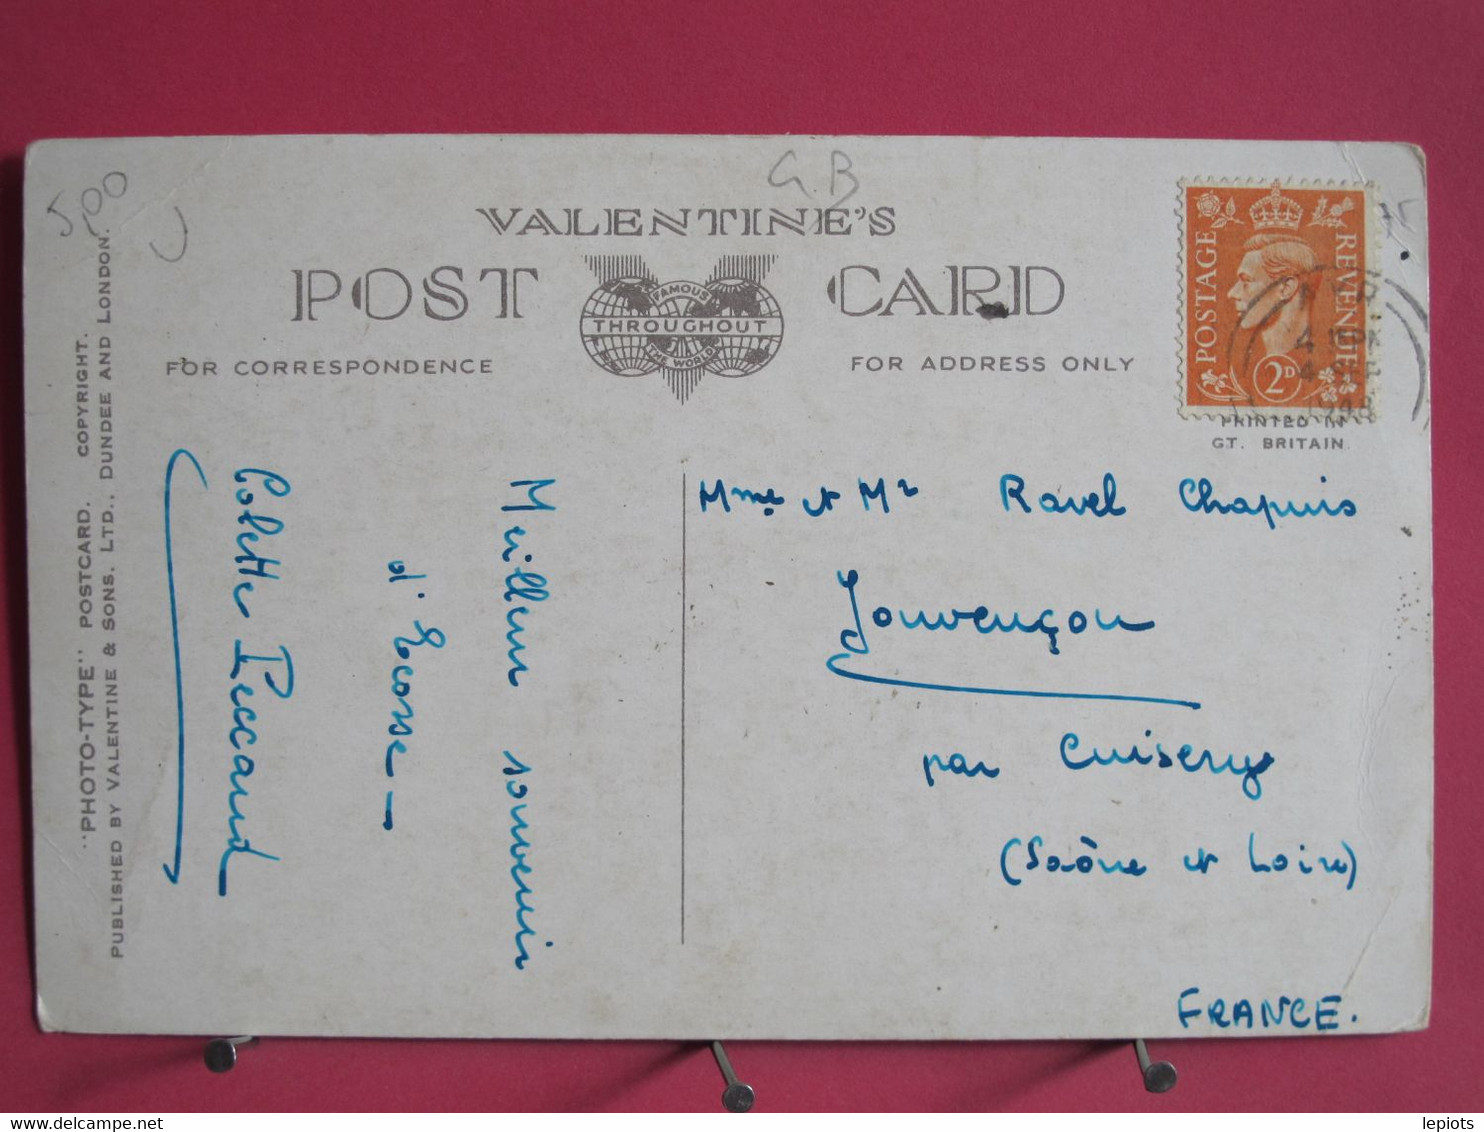 5,00
GB
VALENTINE'S
POST CARD
FAMOUS
THROUGHOUT
THE WORLD
FOR CORRESPONDENCE
FOR ADDRESS ONLY
POSTAGE
REVENUE
2D
4
4 SEP
1948
PRINTED IN
GT. BRITAIN
"PHOTO-TYPE" POSTCARD. COPYRIGHT.
PUBLISHED BY VALENTINE & SONS, LTD., DUNDEE AND LONDON.
Meilleur souvenir
d'Ecosse -
Colette Peccaud
Mme et Mr Ravel Chapuis
Jouvençon
par Cuisery
(Saône et Loire)
FRANCE.
lepiots